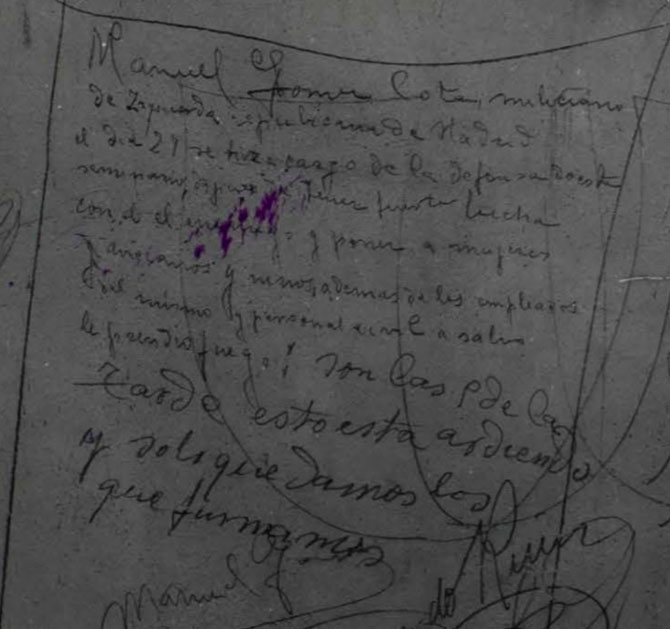 Manuel Gomez Cota, miliciano
de Izquierda republicana de Madrid
el dia 21 se hizo cargo de la defensa de este
seminario, despues de tener fuerte lucha
con el enemigo y poner a mujeres
y ancianos y ninos, ademas de los empleados
del mismo y personal civil a salvo
le prendio fuego; son las 8 de la
tarde esto esta ardiendo
y solo quedamos los
que firmamos
Manuel G
de